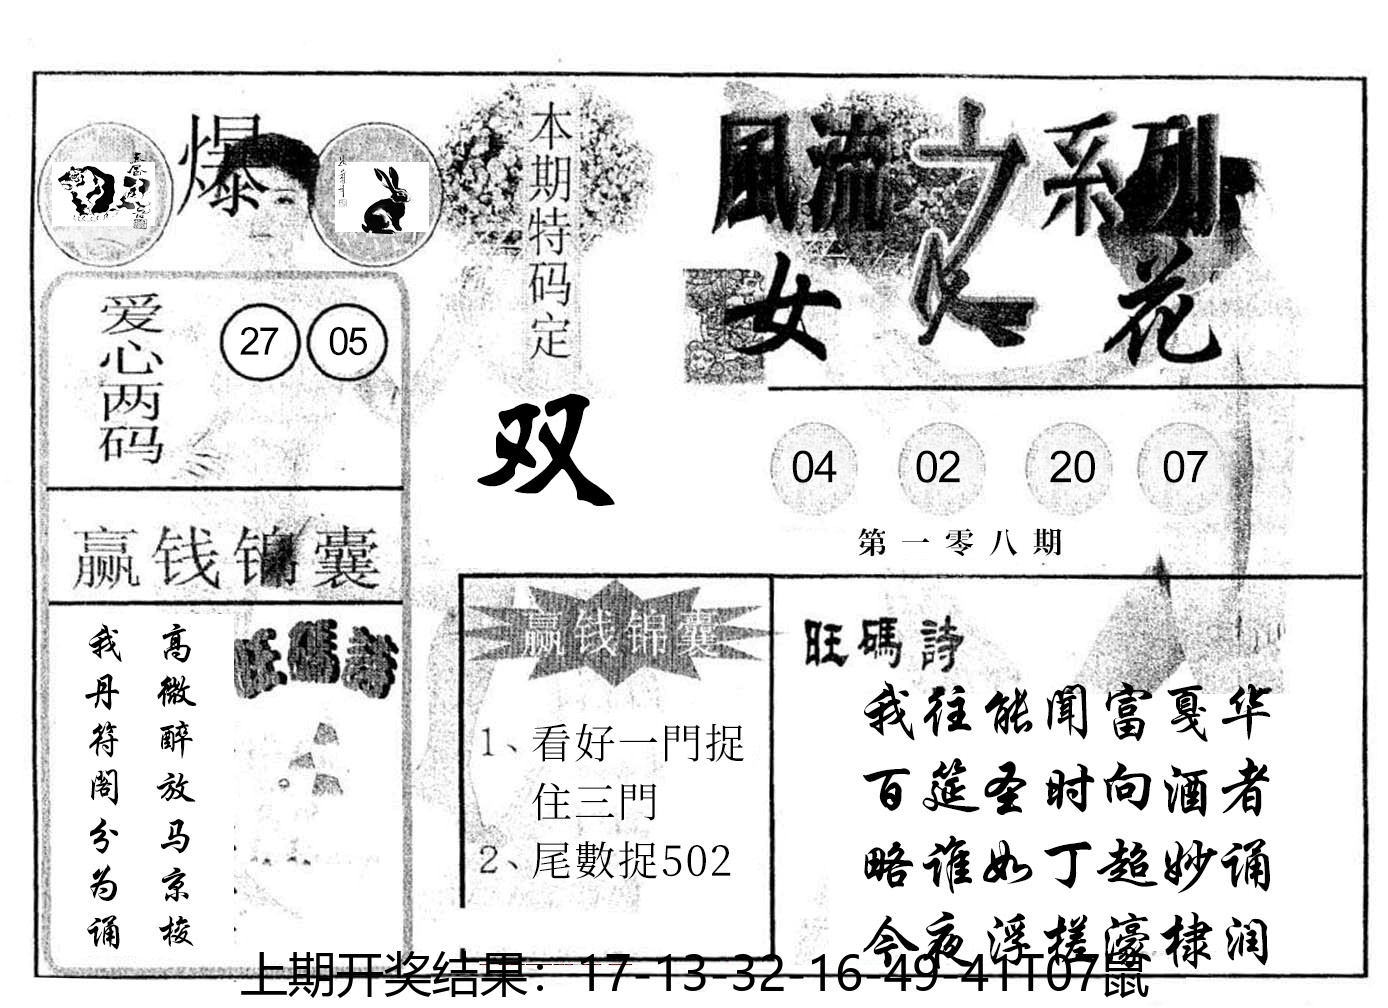 爆
爱心两码
27 05
赢钱锦囊
高微醉放马京梭
我丹符阁分为诵
旺碼詩
本期特码定
双
風流之系列
女人花
04 02 20 07
第一零八期
赢钱锦囊
1、看好一門捉
住三門
2、尾數捉502
旺碼詩
我往能闻富戛华
百筵圣时向酒者
略谁如丁超妙诵
今夜浮搓濠棣润
上期开奖结果：17-13-32-16-49-41T07鼠